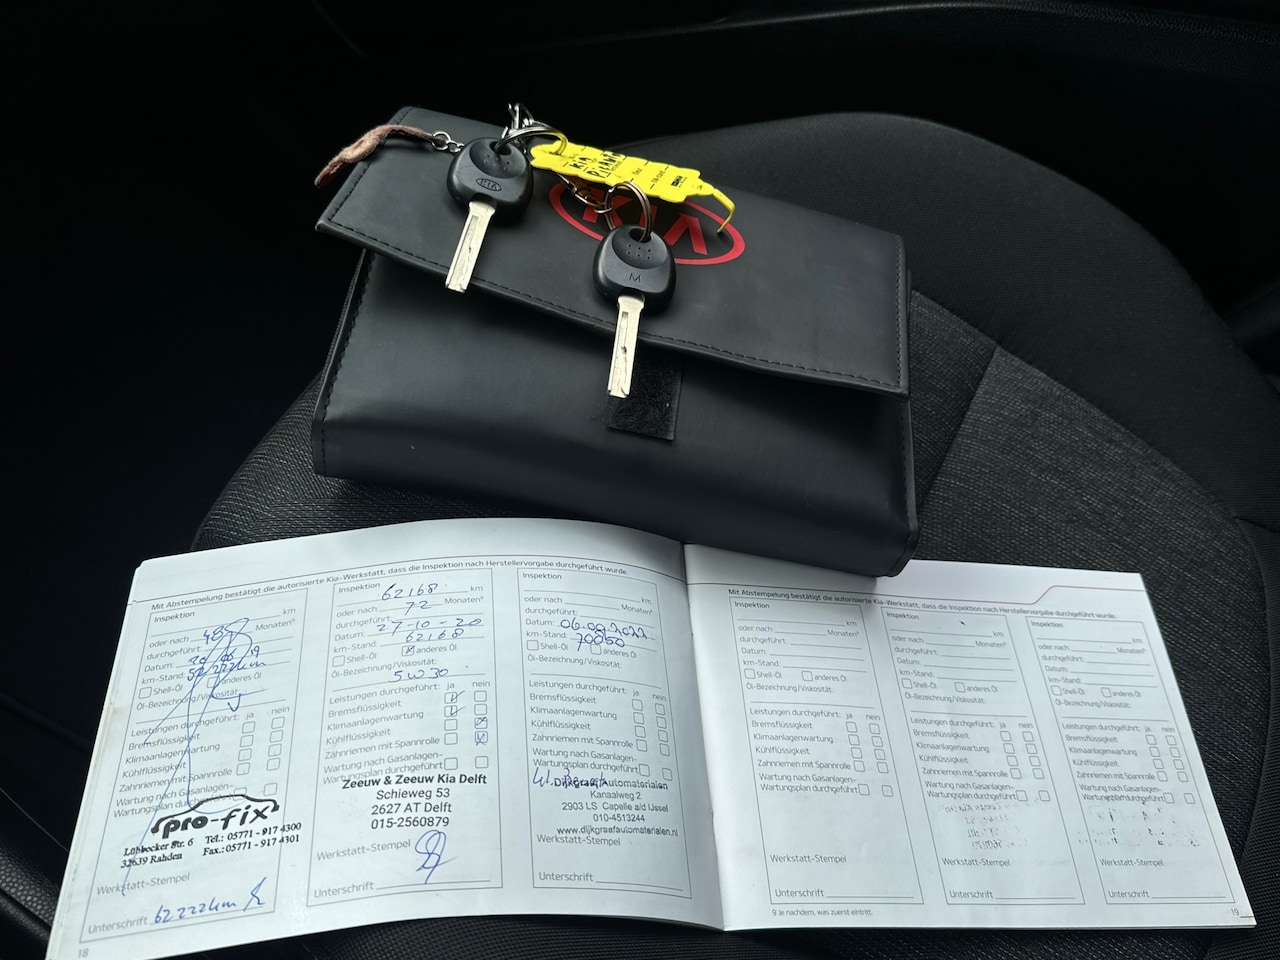 KIA
KIA
KIA
M
Mit Abstempelung bestätigt die autorisierte Kia-Werkstatt, dass die Inspektion nach Herstellervorgabe durchgeführt wurde.
Inspektion
km
oder nach 48 Monaten⁹
durchgeführt:
Datum:
km-Stand:
Shell-Öl anderes Öl
Öl-Bezeichnung/Viskosität:
Leistungen durchgeführt: ja nein
Bremsflüssigkeit
Klimaanlagenwartung
Kühlflüssigkeit
Zahnriemen mit Spannrolle
Wartung nach Gasanlagen-
Wartungsplan durchgeführt
pro-fix
Lübbecker Str. 6 Tel.: 05771 - 917 4300
32639 Rahden Fax.: 05771 - 917 4301
Werkstatt-Stempel
Unterschrift 62222km
18
Inspektion 62168 km
oder nach 72 Monaten⁹
durchgeführt:
Datum: 27-10-20
km-Stand: 62168
Shell-Öl anderes Öl
Öl-Bezeichnung/Viskosität:
5W30
Leistungen durchgeführt: ja nein
Bremsflüssigkeit
Klimaanlagenwartung
Kühlflüssigkeit
Zahnriemen mit Spannrolle
Wartung nach Gasanlagen-
Wartungsplan durchgeführt
Zeeuw & Zeeuw Kia Delft
Schieweg 53
2627 AT Delft
015-2560879
Werkstatt-Stempel
Unterschrift
Inspektion
km
oder nach Monaten⁹
durchgeführt:
Datum: 06.09.2022
km-Stand: 70050
Shell-Öl anderes Öl
Öl-Bezeichnung/Viskosität:
Leistungen durchgeführt: ja nein
Bremsflüssigkeit
Klimaanlagenwartung
Kühlflüssigkeit
Zahnriemen mit Spannrolle
Wartung nach Gasanlagen-
Wartungsplan durchgeführt
Dijkgraaf Automaterialen
Kanaalweg 2
2903 LS Capelle a/d IJssel
010-4513244
www.dijkgraafautomaterialen.nl
Werkstatt-Stempel
Unterschrift
Mit Abstempelung bestätigt die autorisierte Kia-Werkstatt, dass die Inspektion nach Herstellervorgabe durchgeführt wurde.
Inspektion
km
oder nach Monaten⁹
durchgeführt:
Datum:
km-Stand:
Shell-Öl anderes Öl
Öl-Bezeichnung/Viskosität:
Leistungen durchgeführt: ja nein
Bremsflüssigkeit
Klimaanlagenwartung
Kühlflüssigkeit
Zahnriemen mit Spannrolle
Wartung nach Gasanlagen-
Wartungsplan durchgeführt
Werkstatt-Stempel
Unterschrift
9 Je nachdem, was zuerst eintritt
Inspektion
km
oder nach Monaten⁹
durchgeführt:
Datum:
km-Stand:
Shell-Öl anderes Öl
Öl-Bezeichnung/Viskosität:
Leistungen durchgeführt: ja nein
Bremsflüssigkeit
Klimaanlagenwartung
Kühlflüssigkeit
Zahnriemen mit Spannrolle
Wartung nach Gasanlagen-
Wartungsplan durchgeführt
Werkstatt-Stempel
Unterschrift
Inspektion
km
oder nach Monaten⁹
durchgeführt:
Datum:
km-Stand:
Shell-Öl anderes Öl
Öl-Bezeichnung/Viskosität:
Leistungen durchgeführt: ja nein
Bremsflüssigkeit
Klimaanlagenwartung
Kühlflüssigkeit
Zahnriemen mit Spannrolle
Wartung nach Gasanlagen-
Wartungsplan durchgeführt
Werkstatt-Stempel
Unterschrift
19